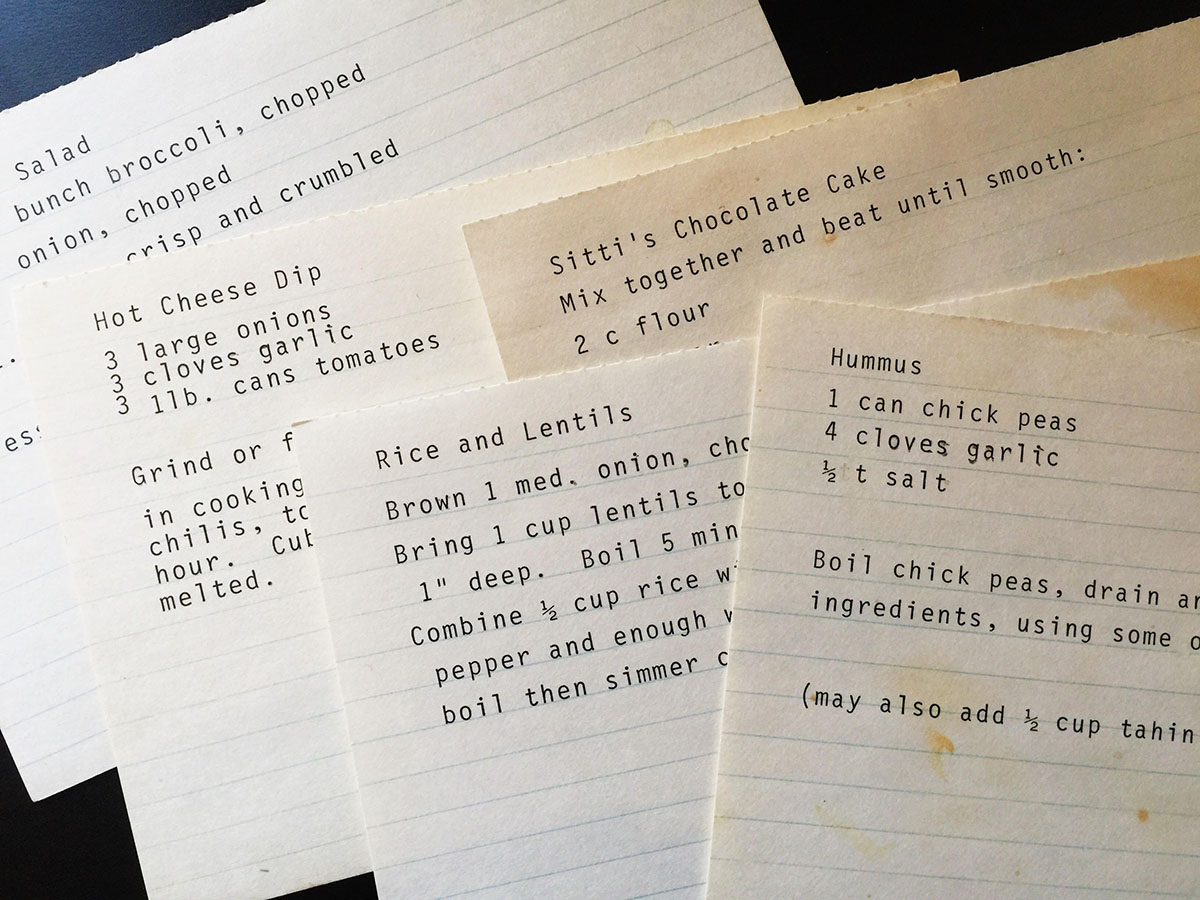 Salad
bunch broccoli, chopped
onion, chopped
crisp and crumbled
Hot Cheese Dip
3 large onions
3 cloves garlic
3 1lb. cans tomatoes
Grind or
in cooking
chilis,
hour.
melted.
Sitti's Chocolate Cake
Mix together and beat until smooth:
2 c flour
Rice and Lentils
Brown 1 med. onion,
Bring 1 cup lentils to
1" deep. Boil 5 min
Combine ½ cup rice
pepper and enough
boil then simmer
Hummus
1 can chick peas
4 cloves garlic
½ t salt
Boil chick peas, drain
ingredients, using some
(may also add ½ cup tahin